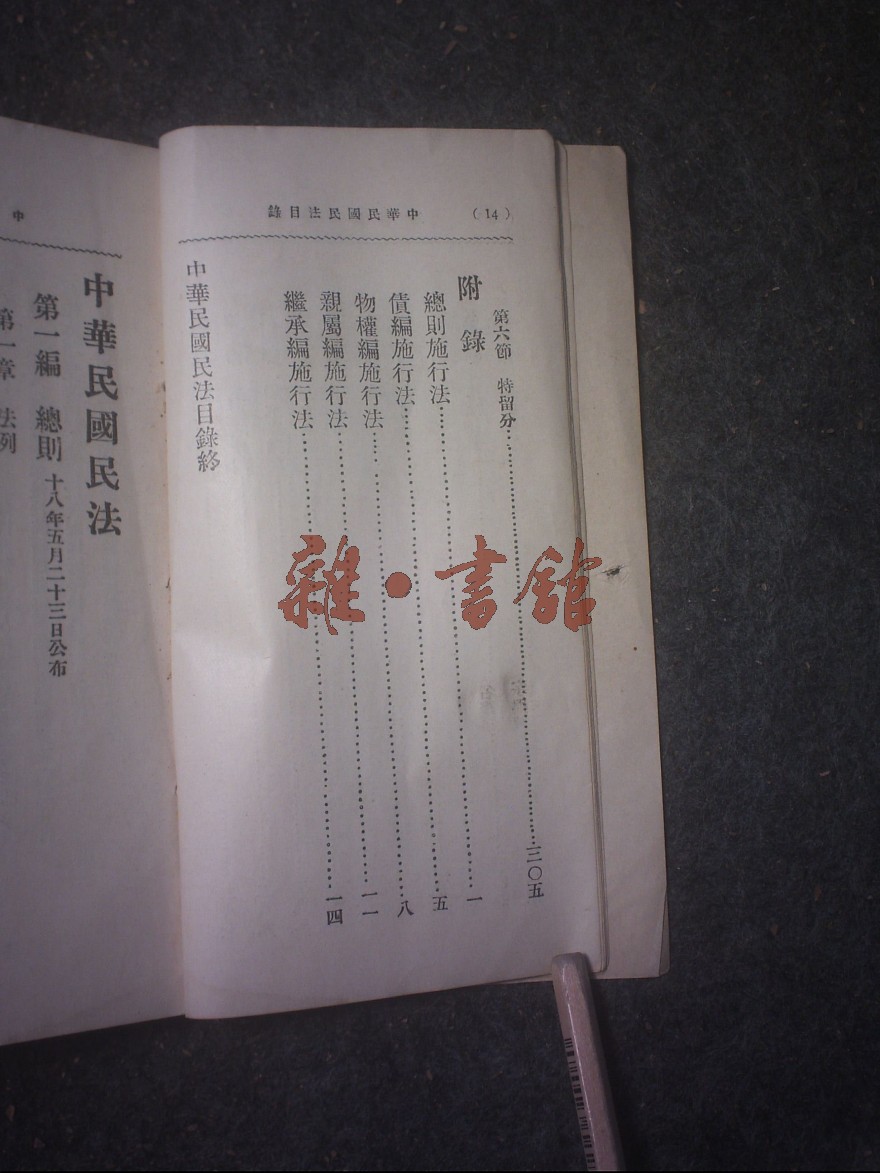 (14) 中華民國民法目錄
第六節 特留分……三〇五
附錄
總則施行法……一
債編施行法……五
物權編施行法……八
親屬編施行法……一一
繼承編施行法……一四
中華民國民法目錄終
中
中華民國民法
第一編 總則 十八年五月二十三日公布
第一章 法
雜•書館